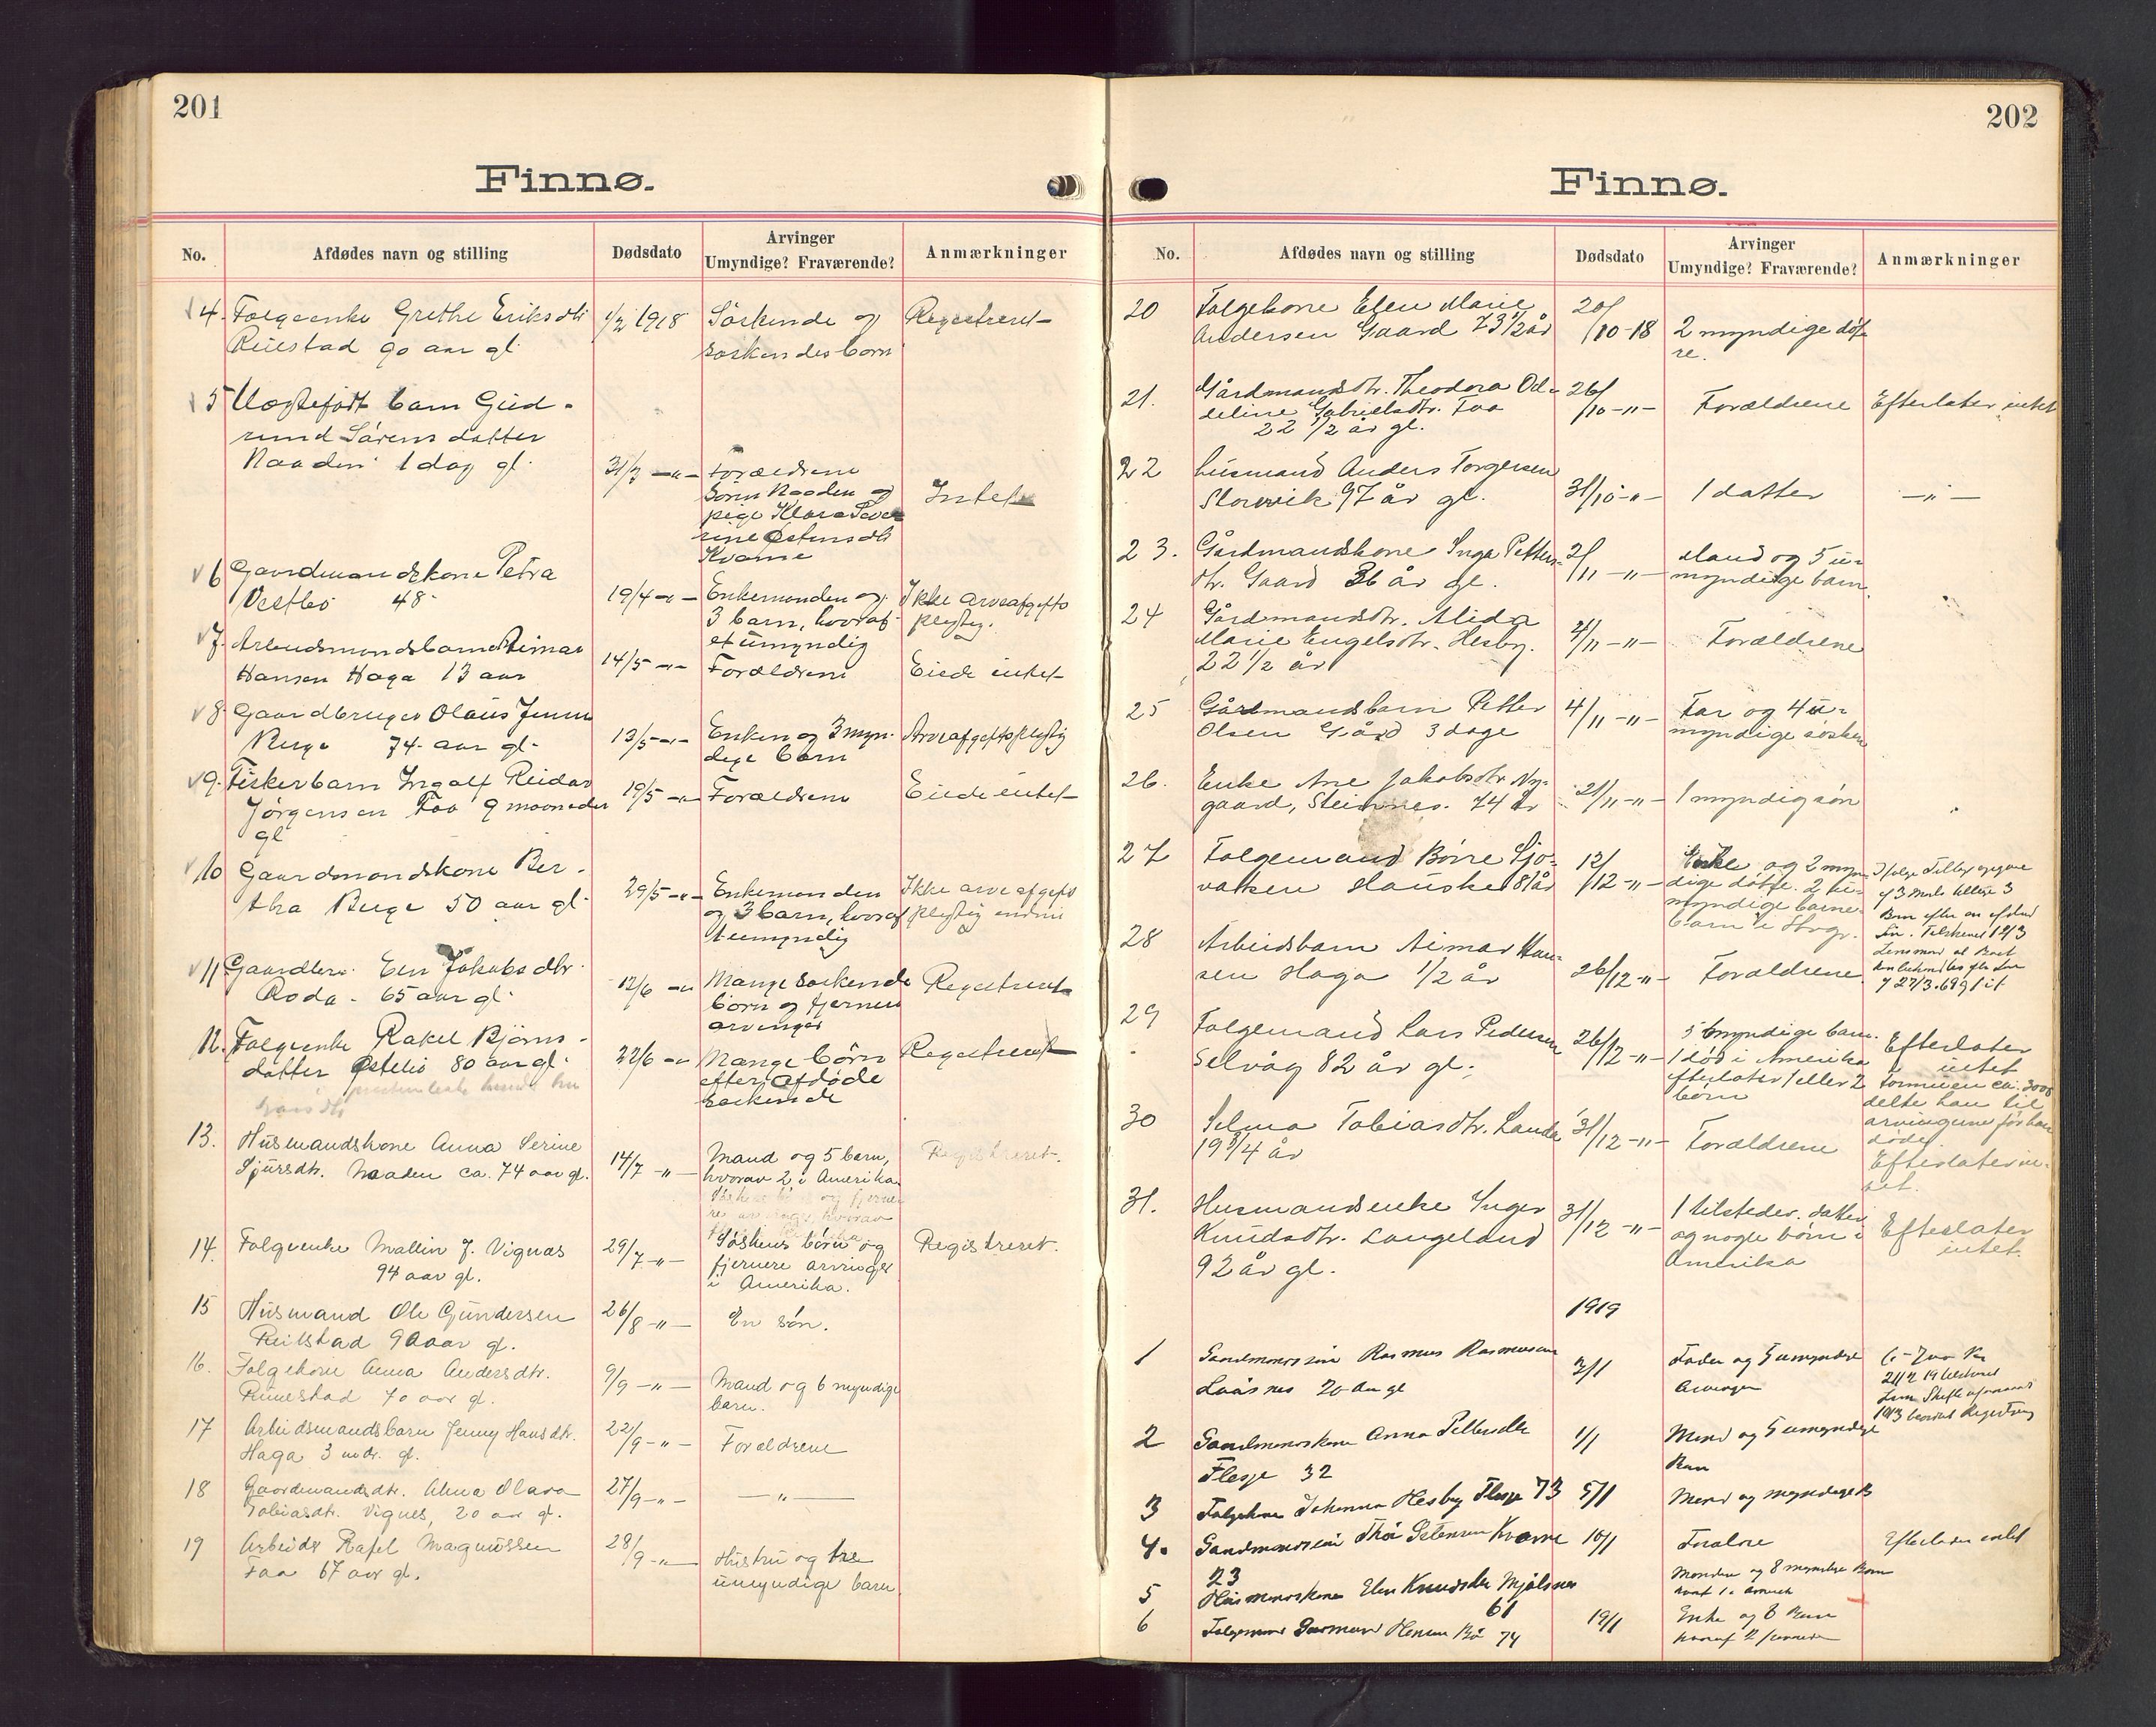 201
Finnø.
No.
Afdødes navn og stilling
Dødsdato
Arvinger
Umyndige? Fraværende?
Anmærkninger
4. Folgeenke Grethe Eriksdtr 1/2 1918 Søskende og Registreret
Reilstad 90 aar gl. søskendes børn
5 Uægtefødt barn Gud-
rund Sørens datter
Naaden 1 dag gl. 31/3 -"- Forældrene
Søren Naaden og Intet
pige Klara Seve-
rine Østensdtr
Kvame
6 Gaardmandskone Petra
Vestbø 48 19/4 -"- Enkemanden og Ikke arveafgifts
3 barn, hvoraf pligtig.
et umyndig
7. Arbeidsmandsbarn Reimar
Hansen Haga 13 aar 14/5 -"- Forældrene Eiede intet
8. Gaardbruger Olaus Jensen
Berge 74 aar gl. 13/5 -"- Enken og 3 myn- Arveafgiftspligtig
dige barn
9. Fiskerbarn Ingolf Reidar 19/5 -"- Forældrene Eiede intet
Jørgensen Faa 9 maaneder
gl
10 Gaardmandskone Ber-
tha Berge 50 aar gl. 29/5 -"- Enkemanden Ikke arveafgifts
og 3 barn, hvoraf pligtig
1 umyndig
11. Gaardbr. Jakobsdtr.
Roda - 65 aar gl. 12/6 -"- Mange søskende Registreret
børn og fjernere
arvinger
12. Folgeenke Rakel Bjørns-
datter Østebø 80 aar gl. 22/6 -"- Mange børn Registreret
efter afdøde
søskende
13. Husmandskone Anna Serine
Sjursdtr. Naaden ca. 74 aar gl. 14/7 -"- Mand og 5 barn, Registreret.
hvorav 2 i Amerika
14. Folgeenke Mallin J. Vignas 29/7 -"- Søskens børn og Registreret.
94 aar gl. fjernere arvinger
i Amerika.
15 Husmand Ole Gundersen 26/8 -"- En søn.
Reilstad 90 aar gl.
16. Folgekone Anna Andersdtr. 9/9 -"- Mand og 6 myndige
Reilestad 70 aar gl. barn.
17 Arbeidsmandsbarn Jenny Hansdtr. 22/9 -"- Forældrene
Haga 3 mdr. gl.
18 Gaardmandsdtr. Alma Olava 27/9 -"- -"-
Tobiasdtr. Vignes, 20 aar gl.
19 Arbeider Rafel Magnussen 28/9 -"- Hustru og tre
Faa 67 aar gl. umyndige barn.
202
Finnø.
No.
Afdødes navn og stilling
Dødsdato
Arvinger
Umyndige? Fraværende?
Anmærkninger
20 Folgekone Elen Marie 20/10-18 2 myndige døt-
Andersen Gaard 73 1/2 år re.
21. Gårdmandsdtr. Theodora Od- 26/10 -"- Forældrene Efterlater intet
deline Gabrielsdtr. Faa
22 1/2 år gl.
22 Husmand Anders Torgersen
Storevik 97 år gl. 31/10 -"- 1 datter -"-
23. Gårdmandskone Inga Petters- 2/11 -"- Mand og 5 u-
dtr. Gaard 36 år gl. myndige barn.
24 Gårdmandsdtr. Alida
Marie Engelsdtr. Hesby. 4/11 -"- Forældrene
22 1/2 år
25 Gårdmandsbarn Petter 4/11 -"- Far og 4 u-
Olsen Gård 3 dage myndige søsken
26. Enke Ane Jakobsdtr. Ny-
gaard, Steinnes. 74 år 21/11 -"- 1 myndig søn
27 Folgemand Børre Sjo- 12/12 -"- Enke og 2 myn-
vatsen Hauske 81 år dige døtre. 2 u-
myndige barne-
barn i Stvgr.
28 Arbeidsbarn Aimar Han-
sen Haga 1/2 år 26/12 -"- Forældrene
29 Folgemand Lars Pedersen 26/12 -"- 5 myndige barn. Efterlater
Selvåg 82 år gl. 1 død i Amerika intet
efterlater 1 eller 2 Formuen ca. 3000
børn delte han til
arvingerne før han
døde.
30 Selma Tobiasdtr. Lauda 31/12 -"- Forældrene Efterlater in-
19 3/4 år tet.
31. Husmandsenke Inger 31/12 -"- 1 tilsteder. datter Efterlater
Knudsdtr. Langeland og nogle børn i intet.
92 år gl. Amerika
1919
1 Rasmus Rasmussen 3/1 Fader og 5 umyndige
20 Aar gl Arvinger
2 Gaardmandskone Anna 1/1 Mand og 5 umyndige
Flesje 32 Barn
3 Folgekone Johanna Hesby Flesje 73 5/1 Mand og myndige B
4. Kvame 10/1 Efterlader intet
23
5 Husmandskone Elen Knudsdtr Mjølsnes Manden og 8 myndige Børn
61
6 19/1 Enke og 8 Barn
74